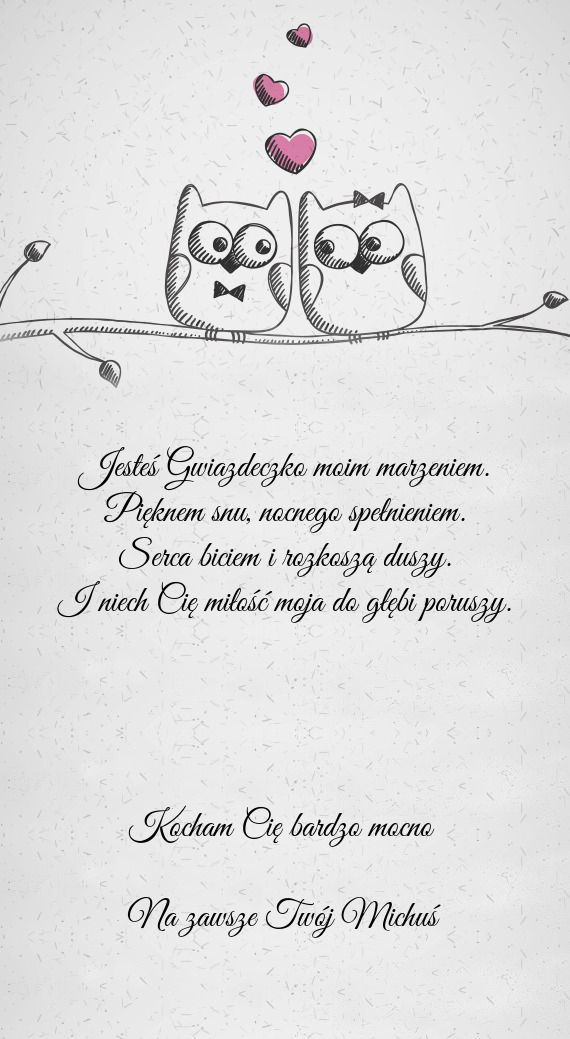 Jesteś Gwiazdeczko moim marzeniem.
Pięknem snu, nocnego spełnieniem.
Serca biciem i rozkoszą duszy.
I niech Cię miłość moja do głębi poruszy.
Kocham Cię bardzo mocno
Na zawsze Twój Michuś